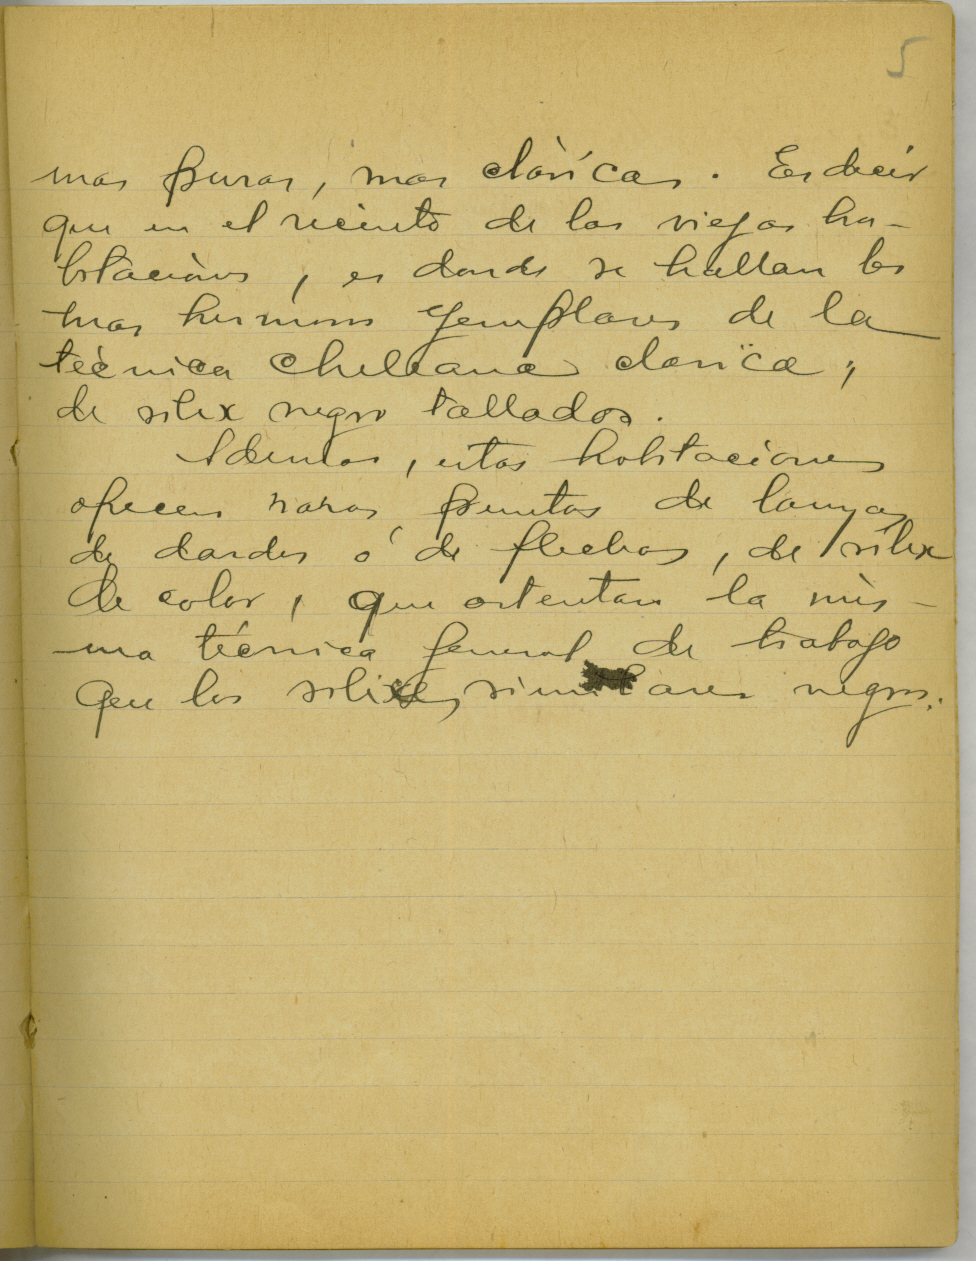 5
mas puras, mas clásicas. Es decir
que en el recinto de las viejas ha-
bitaciones, es donde se hallan los
mas hermosos ejemplares de la
técnica chelleana clasica,
de silex negro tallados.
Ademas, estas habitaciones
ofrecen raras puntas de lanzas,
de dardos ó de flechas, de silex
de color, que ostentan la mis-
ma técnica general de trabajo
que los silixes similares negros.